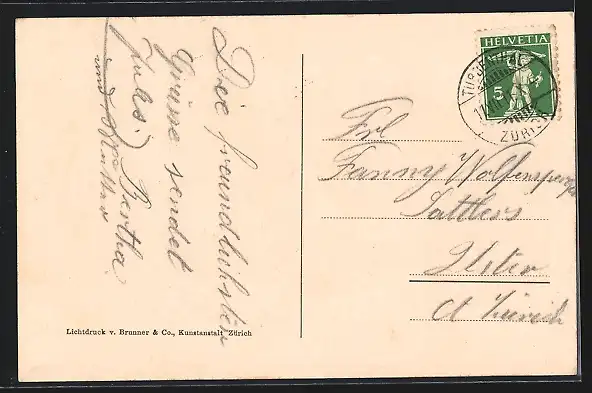 Die freundlichsten
Grüsse sendet
Jules. Bertha
und Mutter
HELVETIA
5
ZÜRICH
Frl
Fanny Wolfensperger
Sattlers
Uster
Ct Zürich
Lichtdruck v. Brunner & Co., Kunstanstalt Zürich